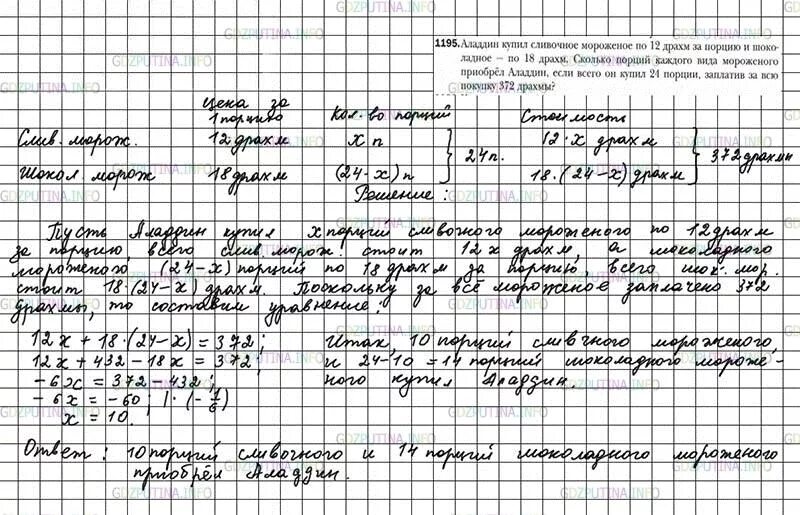 GDZPUTINA.INFO
1195. Аладдин купил сливочное мороженое по 12 драхм за порцию и шоко-
ладное – по 18 драхм. Сколько порций каждого вида мороженого
приобрёл Аладдин, если всего он купил 24 порции, заплатив за всю
покупку 372 драхмы?
цена за 1 порцию Кол. во порций Стоимость
Слив. морож. 12 драхм x п } 24п. 12·x драхм } 372 драхмы
Шокол морож 18 драхм (24-x) п 18·(24-x) драхм
Решение:
Пусть Аладдин купил x порций сливочного мороженого по 12 драхм
за порцию, всего слив. морож. стоит 12x драхм, а шоколадного
мороженого (24-x) порций по 18 драхм за порцию, всего шок. мор.
стоит 18·(24-x) драхм. Поскольку за всё мороженое заплачено 372
драхмы, то составим уравнение:
12x + 18·(24-x) = 372;
12x + 432 - 18x = 372;
-6x = 372 - 432;
-6x = -60; |·(-1/6)
x = 10.
Итак, 10 порций сливчного мороженого,
и 24-10 = 14 порций шоколадного мороже-
ного купил Аладдин.
Ответ: 10 порций сливчного и 14 порций шоколадного мороженого
приобрёл Аладдин.